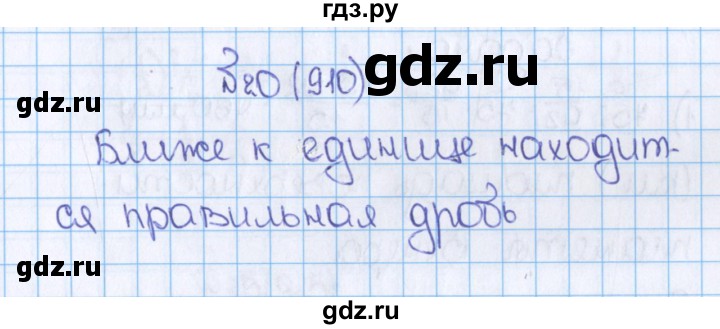 гдз.ру
№20 (910)
gdz.ru
gdz.ru
gdz.ru
Ближе к единице находит-
ся правильная дробь
gdz.ru
gdz.ru
gdz.ru